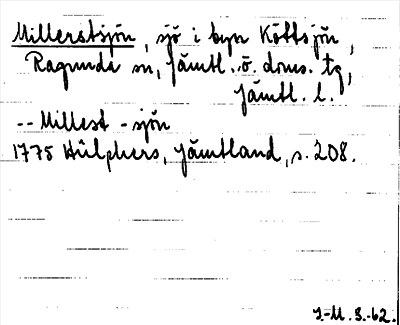 Millerstsjön, sjö i byn Köttsjön,
Ragunda sn, Jämtl. ö. doms. tg,
Jämtl. l.
-- Millest - sjön
1775 Hülphers, Jämtland, s. 208.
J.-M. S.-62.